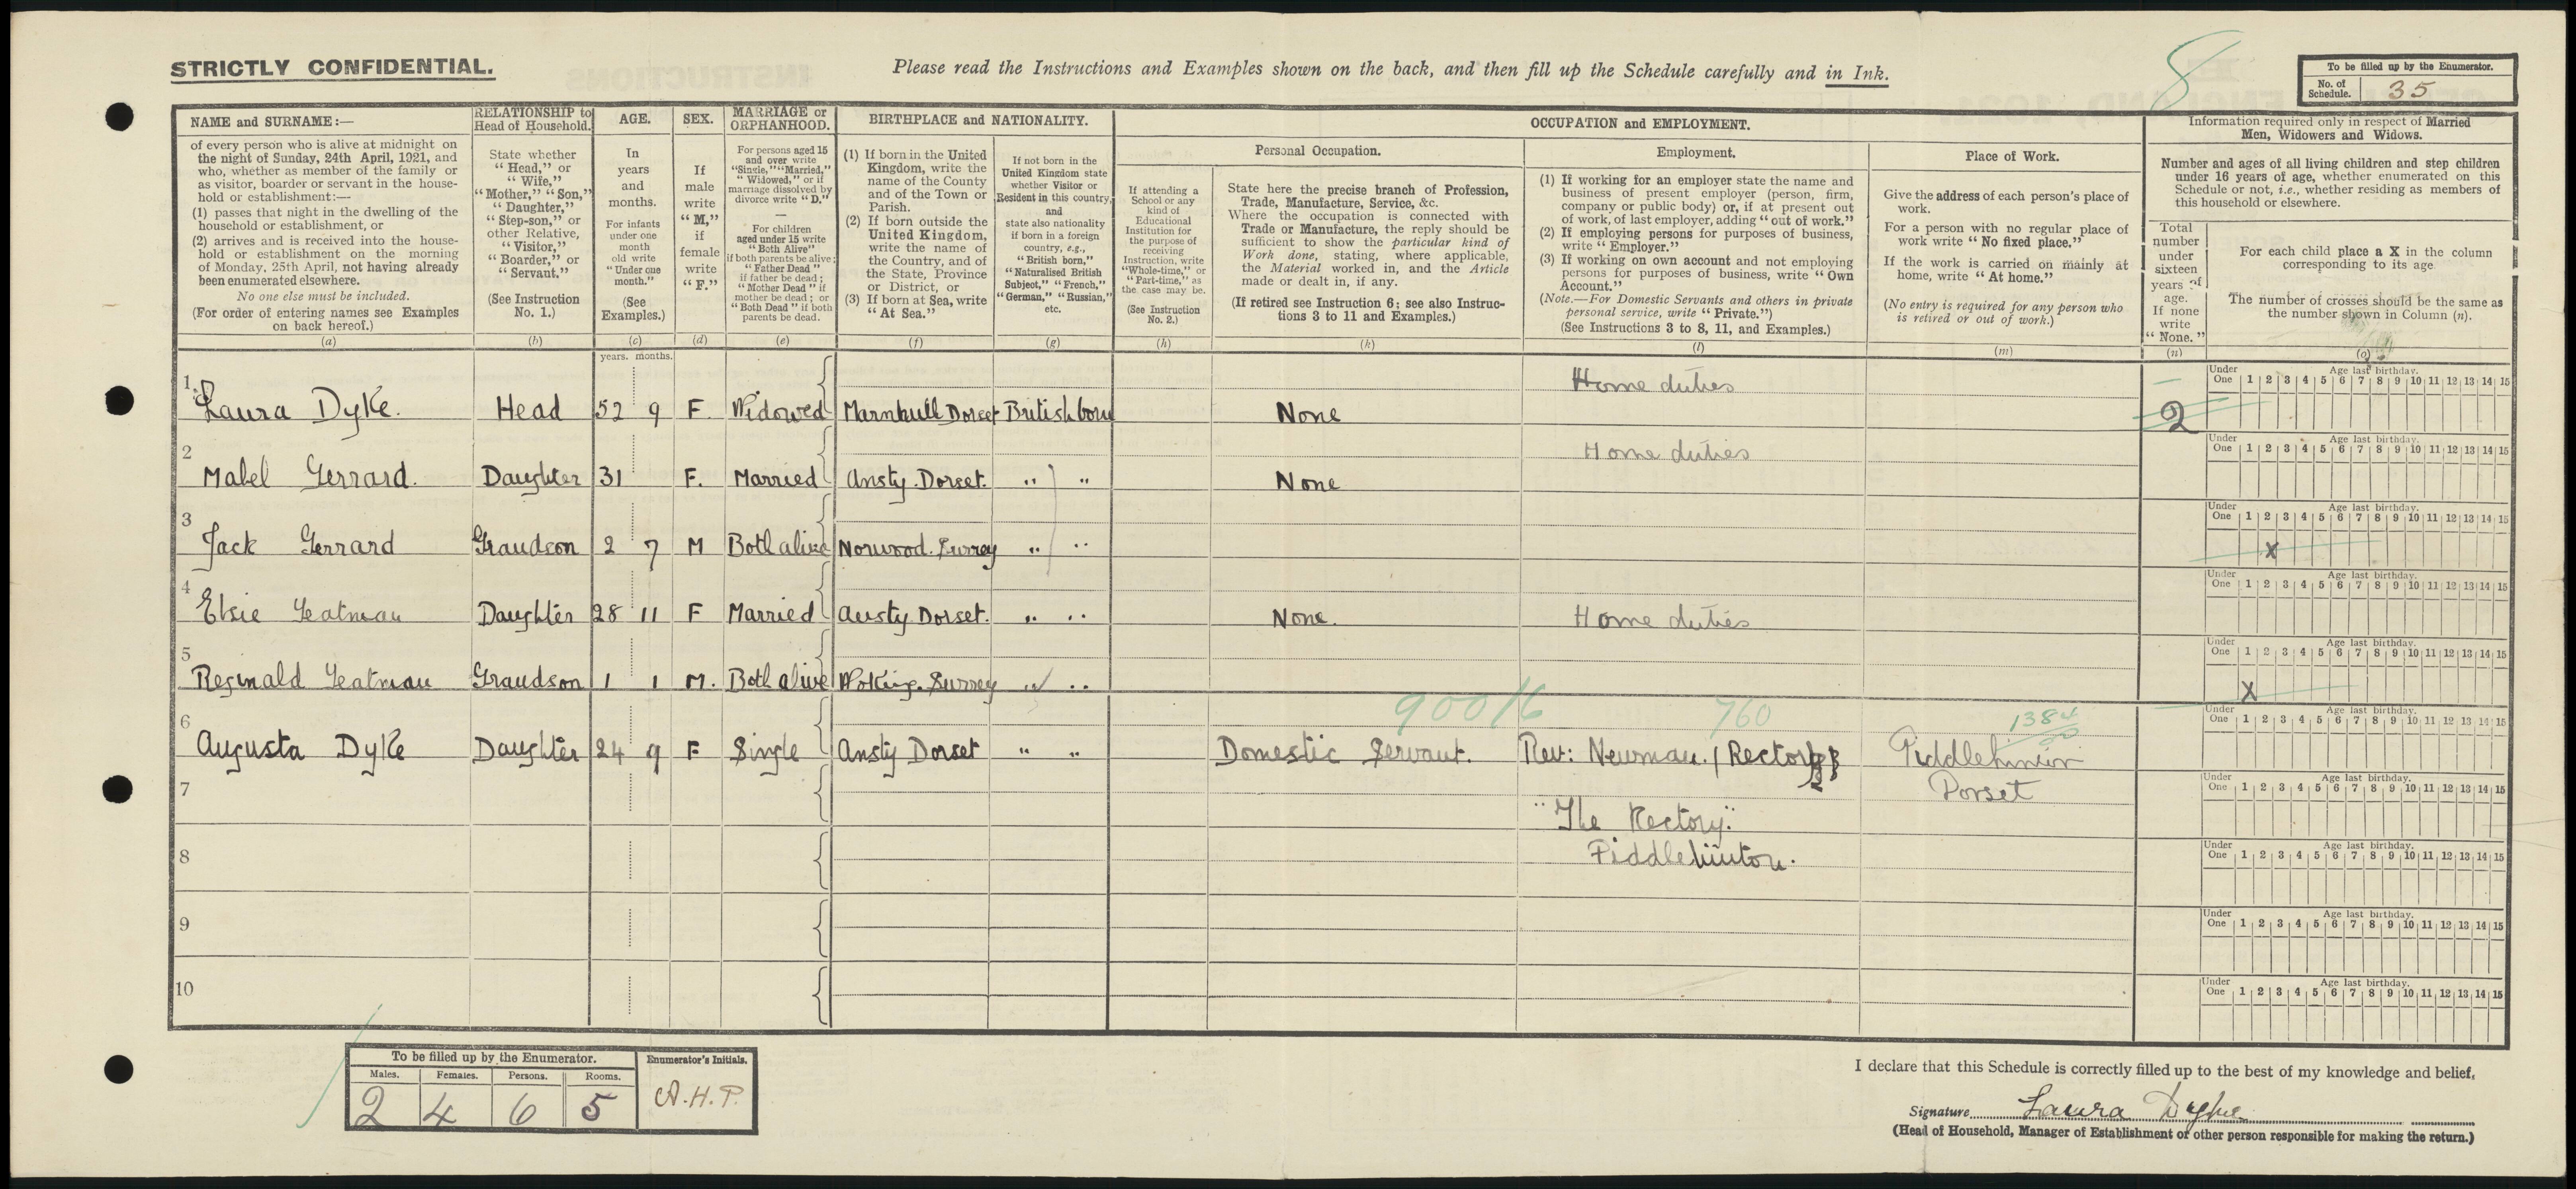 STRICTLY CONFIDENTIAL.
Please read the Instructions and Examples shown on the back, and then fill up the Schedule carefully and in Ink.
8
To be filled up by the Enumerator.
No. of Schedule. 35
NAME and SURNAME:—
of every person who is alive at midnight on
the night of Sunday, 24th April, 1921, and
who, whether as member of the family or
as visitor, boarder or servant in the house-
hold or establishment:—
(1) passes that night in the dwelling of the
household or establishment, or
(2) arrives and is received into the house-
hold or establishment on the morning
of Monday, 25th April, not having already
been enumerated elsewhere.
No one else must be included.
(For order of entering names see Examples
on back hereof.)
(a)
RELATIONSHIP to
Head of Household.
State whether
"Head," or
"Wife,"
"Mother," "Son,"
"Daughter,"
"Step-son," or
other Relative,
"Visitor,"
"Boarder," or
"Servant."
(See Instruction
No. 1.)
(b)
AGE.
In
years
and
months.
For infants
under one
month
old write
"Under one
month."
(See
Examples.)
(c)
SEX.
If
male
write
"M,"
if
female
write
"F."
(d)
MARRIAGE or
ORPHANHOOD.
For persons aged 15
and over write
"Single," "Married,"
"Widowed," or if
marriage dissolved by
divorce write "D."
—
For children
aged under 15 write
"Both Alive"
if both parents be alive;
"Father Dead"
if father be dead;
"Mother Dead" if
mother be dead; or
"Both Dead" if both
parents be dead.
(e)
BIRTHPLACE and NATIONALITY.
(1) If born in the United
Kingdom, write the
name of the County
and of the Town or
Parish.
(2) If born outside the
United Kingdom,
write the name of
the Country, and of
the State, Province
or District, or
(3) If born at Sea, write
"At Sea."
(f)
If not born in the
United Kingdom state
whether Visitor or
Resident in this country,
and
state also nationality
if born in a foreign
country, e.g.,
"British born,"
"Naturalised British
Subject," "French,"
"German," "Russian,"
etc.
(g)
OCCUPATION and EMPLOYMENT.
If attending a
School or any
kind of
Educational
Institution for
the purpose of
receiving
Instruction, write
"Whole-time," or
"Part-time," as
the case may be.
(See Instruction
No. 2.)
(h)
Personal Occupation.
State here the precise branch of Profession,
Trade, Manufacture, Service, &c.
Where the occupation is connected with
Trade or Manufacture, the reply should be
sufficient to show the particular kind of
Work done, stating, where applicable,
the Material worked in, and the Article
made or dealt in, if any.
(If retired see Instruction 6; see also Instruc-
tions 3 to 11 and Examples.)
(k)
Employment.
(1) If working for an employer state the name and
business of present employer (person, firm,
company or public body) or, if at present out
of work, of last employer, adding "out of work."
(2) If employing persons for purposes of business,
write "Employer."
(3) If working on own account and not employing
persons for purposes of business, write "Own
Account."
(Note.—For Domestic Servants and others in private
personal service, write "Private.")
(See Instructions 3 to 8, 11, and Examples.)
(l)
Place of Work.
Give the address of each person's place of
work.
For a person with no regular place of
work write "No fixed place."
If the work is carried on mainly at
home, write "At home."
(No entry is required for any person who
is retired or out of work.)
(m)
Information required only in respect of Married
Men, Widowers and Widows.
Number and ages of all living children and step children
under 16 years of age, whether enumerated on this
Schedule or not, i.e., whether residing as members of
this household or elsewhere.
Total
number
under
sixteen
years of
age.
If none
write
"None."
(n)
For each child place a X in the column
corresponding to its age
The number of crosses should be the same as
the number shown in Column (n).
(o)
years. months.
Under One Age last birthday. 1 2 3 4 5 6 7 8 9 10 11 12 13 14 15
1 Laura Dyke. Head 52 9 F. Widowed Marnhull Dorset British born None Home duties 2
Under One Age last birthday. 1 2 3 4 5 6 7 8 9 10 11 12 13 14 15
2 Mabel Gerrard. Daughter 31 F. Married Ansty. Dorset. " " None Home duties
Under One Age last birthday. 1 2 3 4 5 6 7 8 9 10 11 12 13 14 15
3 Jack Gerrard Grandson 2 7 M Both alive Norwood. Surrey " " X
Under One Age last birthday. 1 2 3 4 5 6 7 8 9 10 11 12 13 14 15
4 Elsie Yeatman Daughter 28 11 F Married Ansty Dorset. " " None. Home duties
Under One Age last birthday. 1 2 3 4 5 6 7 8 9 10 11 12 13 14 15
5 Reginald Yeatman Grandson 1 1 M. Both alive Woking. Surrey " " X
900/6 760 1384
Under One Age last birthday. 1 2 3 4 5 6 7 8 9 10 11 12 13 14 15
6 Augusta Dyke Daughter 24 9 F Single Ansty Dorset " " Domestic Servant. Rev: Newman. / Rector Piddlehinton
Under One Age last birthday. 1 2 3 4 5 6 7 8 9 10 11 12 13 14 15
7 "The Rectory." Dorset
Under One Age last birthday. 1 2 3 4 5 6 7 8 9 10 11 12 13 14 15
8 Piddlehinton.
Under One Age last birthday. 1 2 3 4 5 6 7 8 9 10 11 12 13 14 15
9
Under One Age last birthday. 1 2 3 4 5 6 7 8 9 10 11 12 13 14 15
10
To be filled up by the Enumerator.
Males. Females. Persons. Rooms.
2 4 6 5
Enumerator's Initials.
A.H.P.
I declare that this Schedule is correctly filled up to the best of my knowledge and belief,
Signature Laura Dyke
(Head of Household, Manager of Establishment or other person responsible for making the return.)